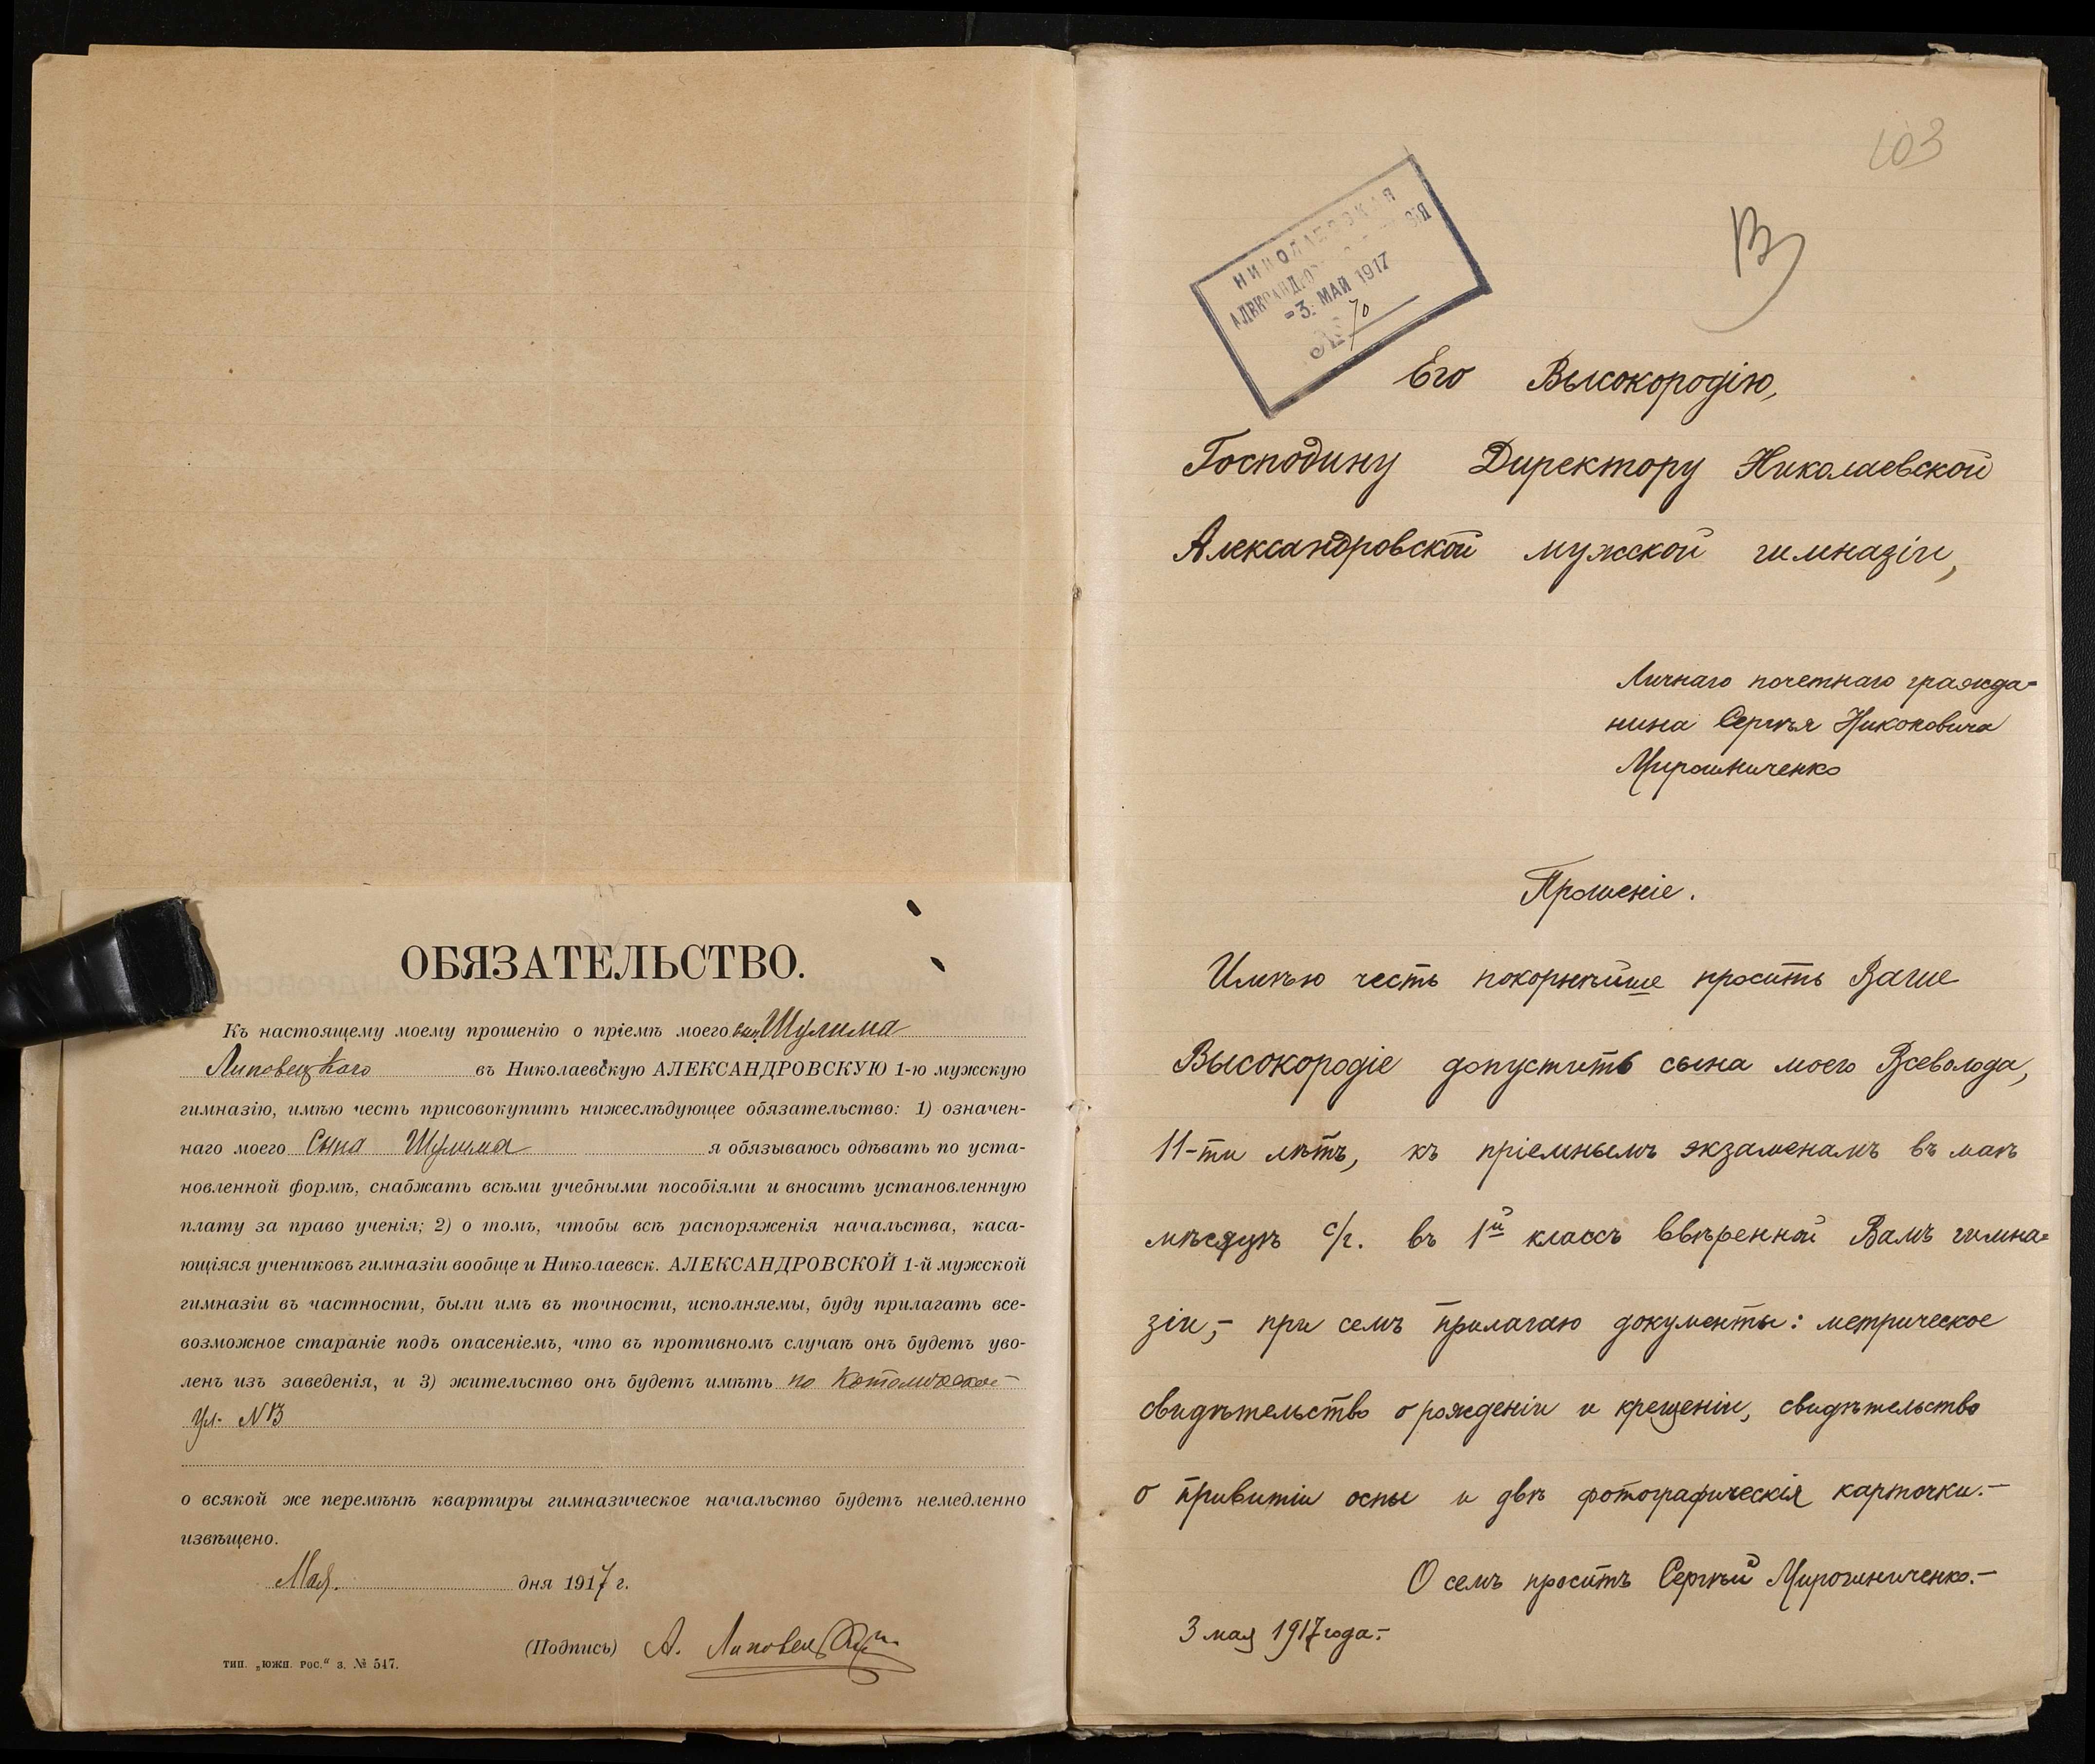 ОБЯЗАТЕЛЬСТВО.
Къ настоящему моему прошенію о пріемѣ моего сына Шулима
Липовецкаго въ Николаевскую АЛЕКСАНДРОВСКУЮ 1-ю мужскую
гимназію, имѣю честь присовокупить нижеслѣдующее обязательство: 1) означен-
наго моего Сына Шулима я обязываюсь одѣвать по уста-
новленной формѣ, снабжать всѣми учебными пособіями и вносить установленную
плату за право ученія; 2) о томъ, чтобы всѣ распоряженія начальства, каса-
ющіяся учениковъ гимназіи вообще и Николаевск. АЛЕКСАНДРОВСКОЙ 1-й мужской
гимназіи въ частности, были имъ въ точности, исполняемы, буду прилагать все-
возможное стараніе подъ опасеніемъ, что въ противномъ случаѣ онъ будетъ уво-
ленъ изъ заведенія, и 3) жительство онъ будетъ имѣть по Католической
ул. №
о всякой же перемѣнѣ квартиры гимназическое начальство будетъ немедленно
извѣщено.
Мая. дня 1917 г.
(Подпись) А. Липовецкій
тип. „южн. рос.“ з. № 547.
103
НИКОЛАЕВСКАЯ
-3 МАЙ 1917
№ 70
Его Высокородію,
Господину Директору Николаевской
Александровской мужской гимназіи,
Личнаго почетнаго гражда-
нина Сергѣя Никоновича
Мирошниченко
Прошеніе.
Имѣю честь покорнѣйше просить Ваше
Высокородіе допустить сына моего Всеволода,
11-ти лѣтъ, къ пріемнымъ экзаменамъ въ маѣ
мѣсяцѣ с/г. въ 1й классъ ввѣренной Вамъ гимна-
зіи,- при семъ прилагаю документы: метрическое
свидѣтельство о рожденіи и крещеніи, свидѣтельство
о привитіи оспы и двѣ фотографическія карточки.-
О семъ проситъ Сергѣй Мирошниченко.-
3 мая 1917 года.-